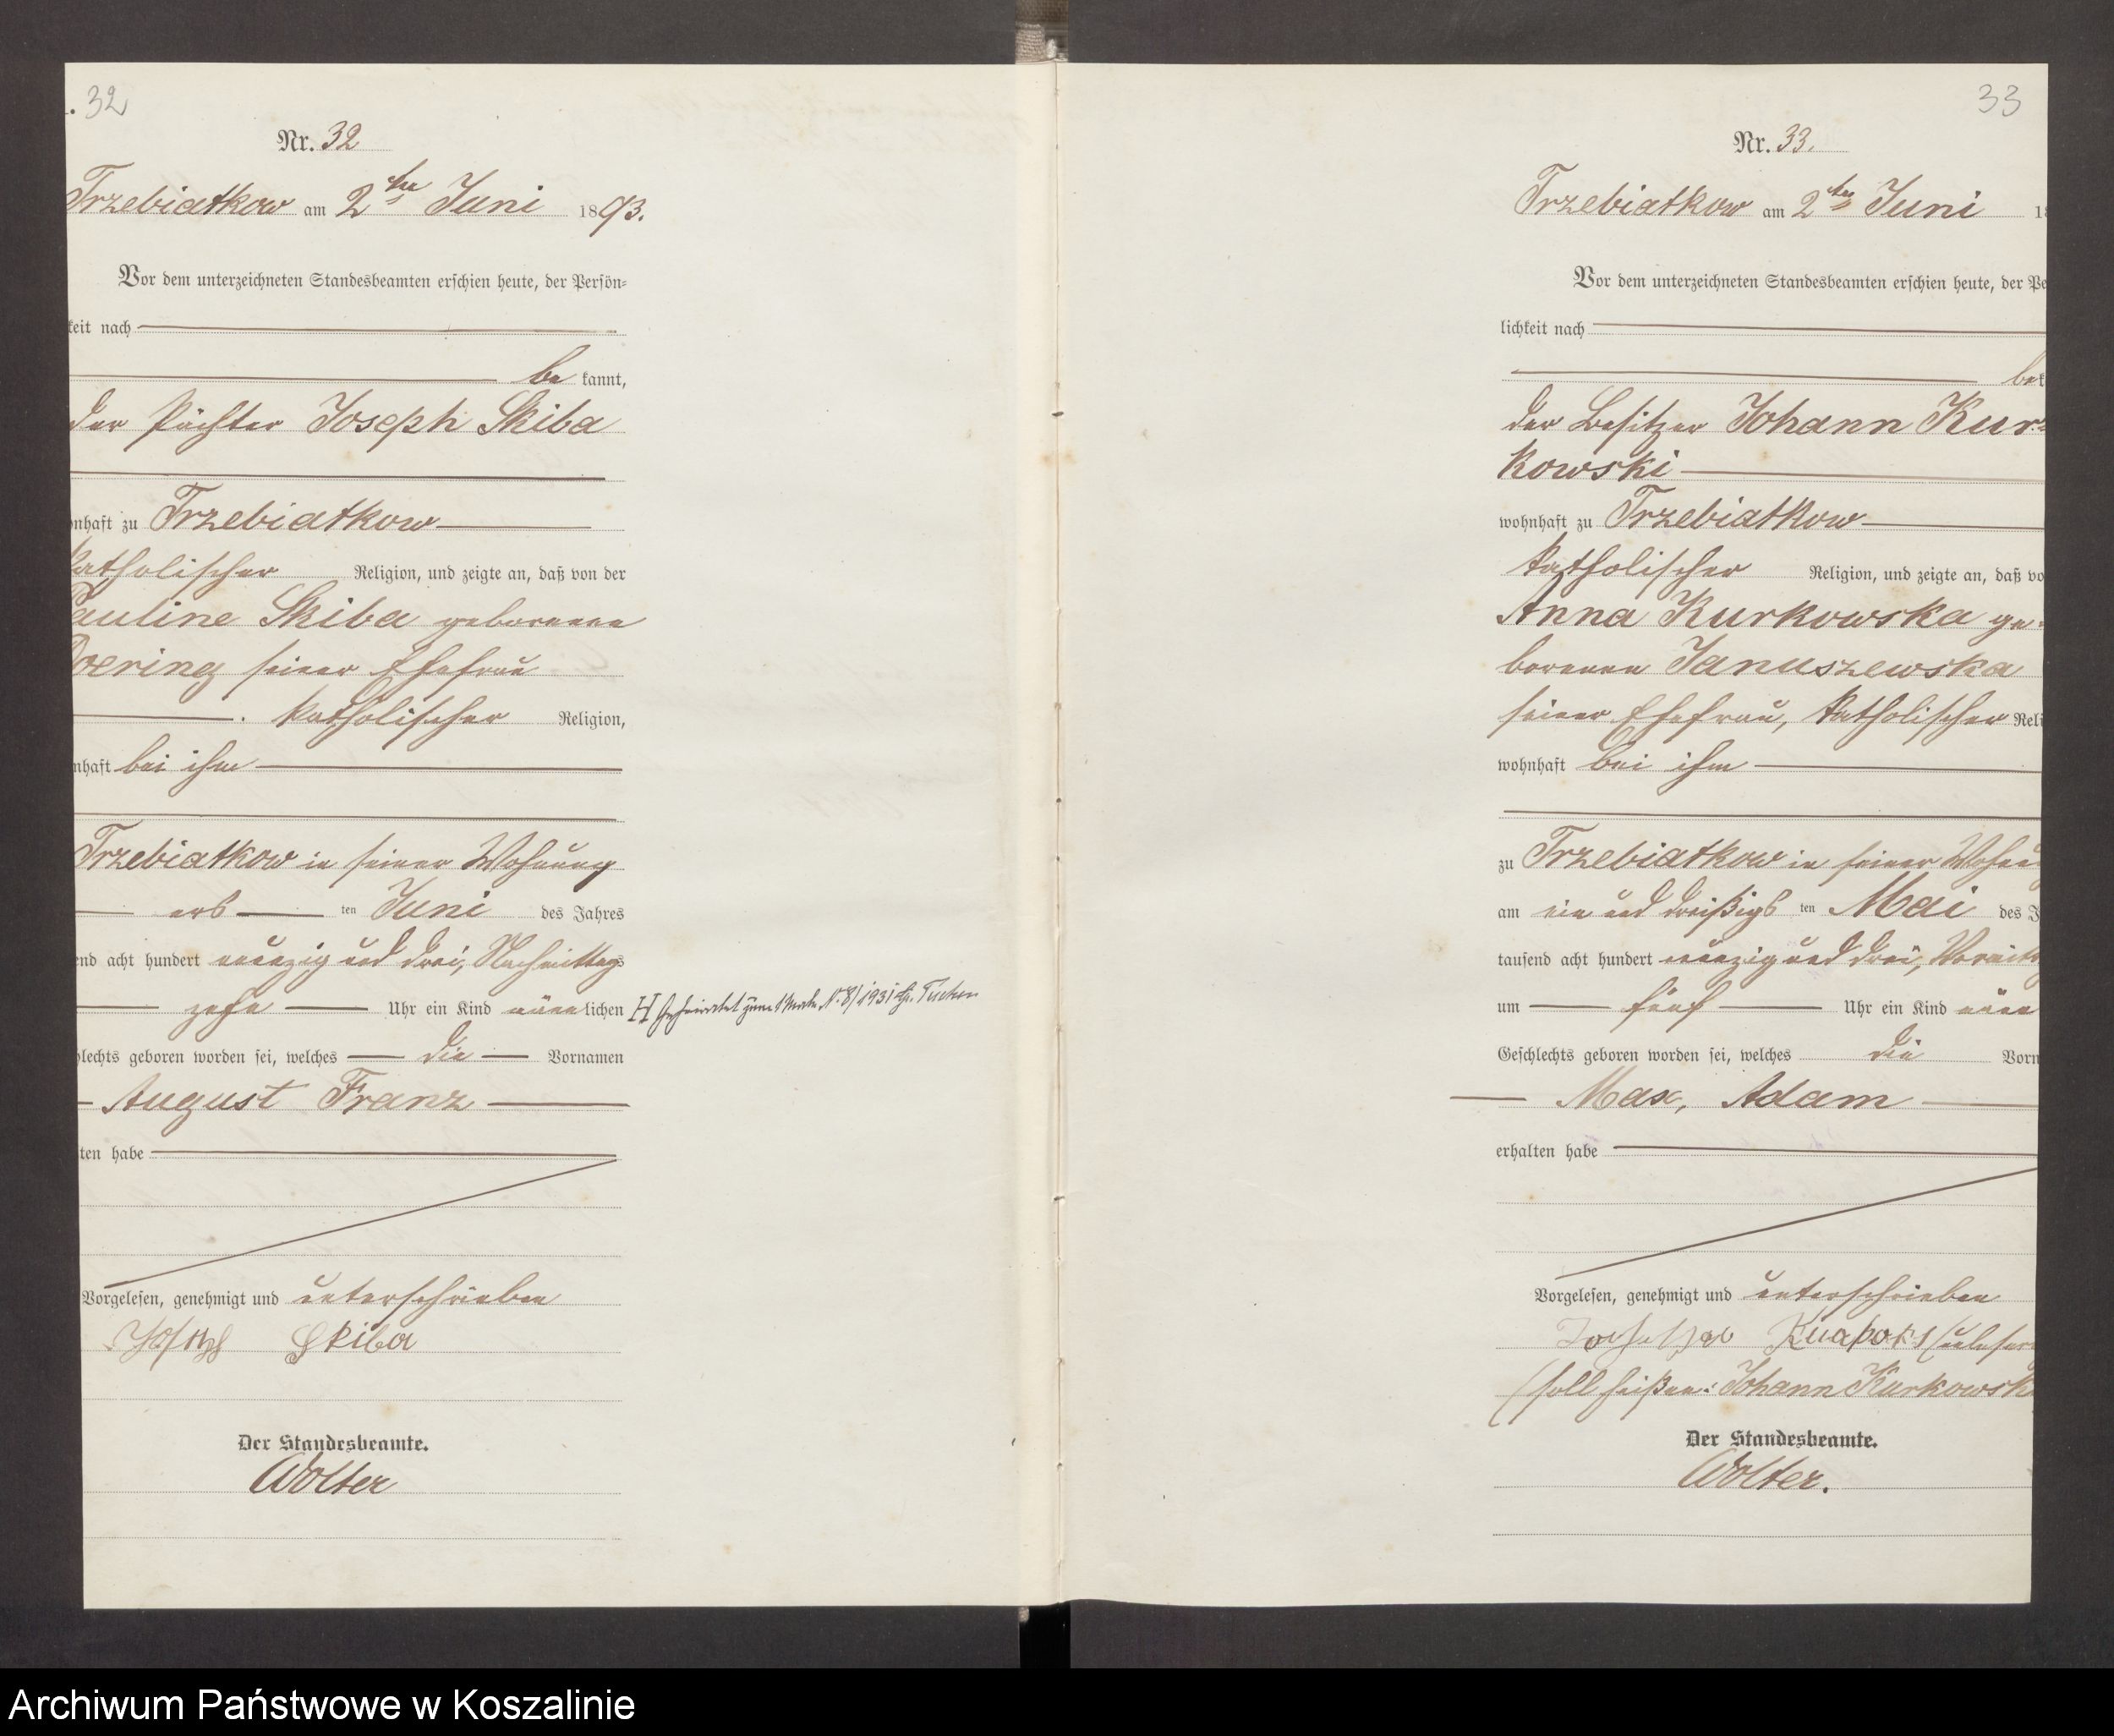 . 32
Nr. 32
Trzebiatkow am 2ten Juni 1893.
Vor dem unterzeichneten Standesbeamten erschien heute, der Persön-
keit nach
be kannt,
der Pächter Joseph Skiba
nhaft zu Trzebiatkow
katholischer Religion, und zeigte an, daß von der
Pauline Skiba geborenen
Doering seiner Ehefrau
katholischer Religion,
nhaft bei ihm
Trzebiatkow in seiner Wohnung
ers ten Juni des Jahres
end acht hundert neunzig und drei, Nachmittags
zehn Uhr ein Kind männlichen
H Geheiratet zum 1 Male Nr. 8/1931
hlechts geboren worden sei, welches die Vornamen
August Franz
ten habe
Vorgelesen, genehmigt und unterschrieben
Joseph Skiba
Der Standesbeamte.
Wolter
33
Nr. 33.
Trzebiatkow am 2ten Juni 1
Vor dem unterzeichneten Standesbeamten erschien heute, der Pe
lichkeit nach
bek
der Besitzer Johann Kur-
kowski
wohnhaft zu Trzebiatkow
katholischer Religion, und zeigte an, daß vo
Anna Kurkowska ge-
borenen Januszewska
seiner Ehefrau, katholischer Reli
wohnhaft bei ihm
zu Trzebiatkow in seiner Wohnu
am ein und dreißigs ten Mai des J
tausend acht hundert neunzig und drei, Vormitt
um fünf Uhr ein Kind männ
Geschlechts geboren worden sei, welches die Vorn
Max, Adam
erhalten habe
Vorgelesen, genehmigt und unterschrieben
(soll heißen: Johann Kurkowsk
Der Standesbeamte.
Wolter.
Archiwum Państwowe w Koszalinie